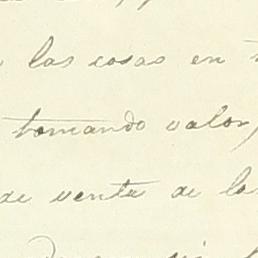 las cosas en
tomando valor,
de venta de la